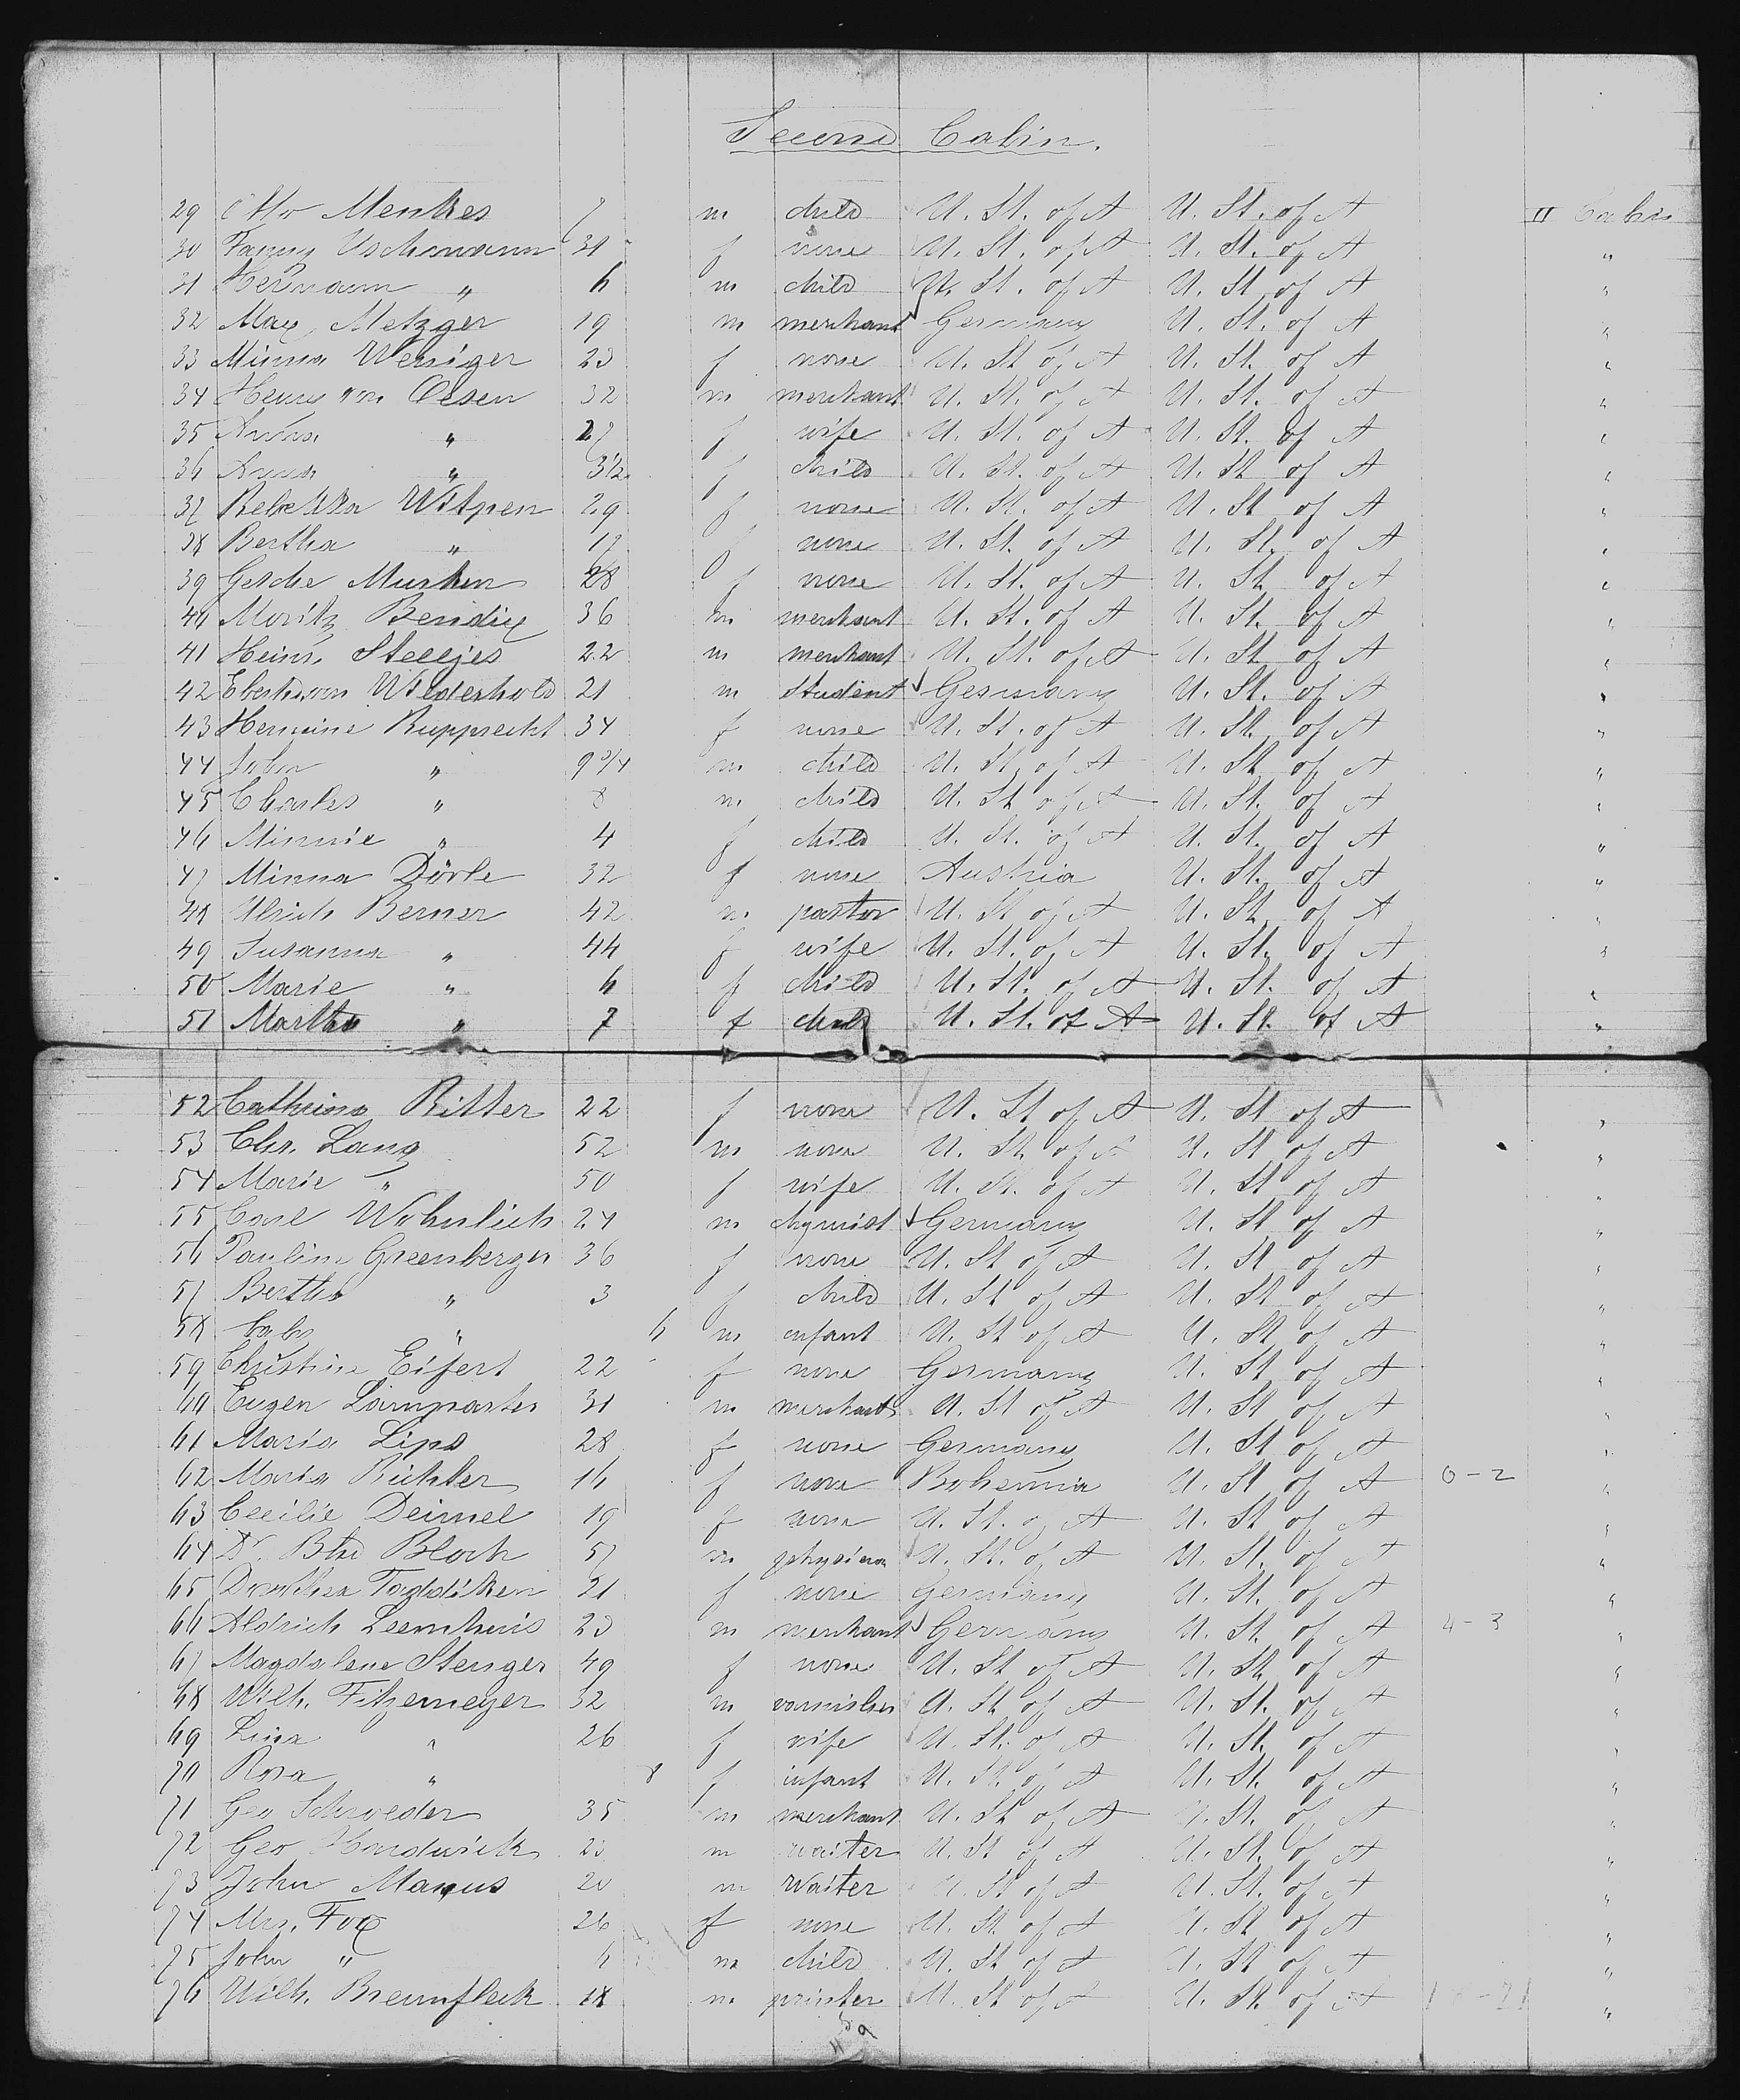 Second Cabin.
29 Otto Menkes 7 m child U. St. of A U. St. of A II Cabin
30 Fanny Uschmann 31 f none U. St. of A U. St. of A "
31 Hermann " 6 m child U. St. of A U. St. of A "
32 Max Metzger 19 m merchant Germany U. St. of A "
33 Minna Weniger 23 f none U. St. of A U. St. of A "
34 Henry von Oesen 32 m merchant U. St. of A U. St. of A "
35 Anna " 27 f wife U. St. of A U. St. of A "
36 Anna " 3 1/2 f child U. St. of A U. St. of A "
37 Rebekka Wilpen 29 f none U. St. of A U. St. of A "
38 Bertha " 17 f none U. St. of A U. St. of A "
39 Gesche Murken 28 f none U. St. of A U. St. of A "
40 Moritz Bendix 36 m merchant U. St. of A U. St. of A "
41 Heinr. Steejes 22 m merchant U. St. of A U. St. of A "
42 Eberh. von Wiederhold 21 m student Germany U. St. of A "
43 Hermine Rupprecht 34 f none U. St. of A U. St. of A "
44 John " 9 3/4 m child U. St. of A U. St. of A "
45 Charles " 8 m child U. St. of A U. St. of A "
46 Minnie " 4 f child U. St. of A U. St. of A "
47 Minna Dörle 32 f none Austria U. St. of A "
48 Ulrich Berner 42 m pastor U. St. of A U. St. of A "
49 Susanna " 44 f wife U. St. of A U. St. of A "
50 Marie " 6 f child U. St. of A U. St. of A "
51 Martha " 7 f child U. St. of A U. St. of A "
52 Cathrina Ritter 22 f none U. St of A U. St of A "
53 Chr. Lang 52 m none U. St. of A U. St of A "
54 Marie " 50 f wife U. St. of A U. St of A "
55 Carl Wohnlich 24 m chymist Germany U. St of A "
56 Pauline Greenberger 36 f none U. St of A U. St of A "
57 Bertha " 3 f child U. St of A U. St of A "
58 baby " 6 m infant U. St of A U. St of A "
59 Christine Eifert 22 f none Germany U. St of A "
60 Eugen Lamparter 31 m merchant U. St of A U. St of A "
61 Maria Lips 28 f none Germany U. St of A "
62 Maria Richter 16 f none Bohemia U. St of A 0-2 "
63 Cecilie Deimel 19 f none U. St. of A U. St of A "
64 Dr. Bloch 57 m physician U. St. of A U. St. of A "
65 Dorothea Taddiken 21 f none Germany U. St. of A "
66 Aldrich Leemhuis 23 m merchant Germany U. St. of A 4-3 "
67 Magdalene Stenger 49 f none U. St of A U. St. of A "
68 Wilh. Fitzemeyer 32 m varnisher U. St of A U. St. of A "
69 Lina " 26 f wife U. St. of A U. St. of A "
70 Rosa " 8 f infant U. St. of A U. St. of A "
71 Geo Schroeder 35 m merchant U. St of A U. St. of A "
72 Geo Hardwick 23 m waiter U. St of A U. St. of A "
73 John Manus 20 m Waiter U. St of A U. St. of A "
74 Mrs. Fox 26 f none U. St. of A U. St of A "
75 John " 6 m child U. St of A U. St of A "
76 Wilh. Brennfleck 18 m printer U. St of A U. St. of A "